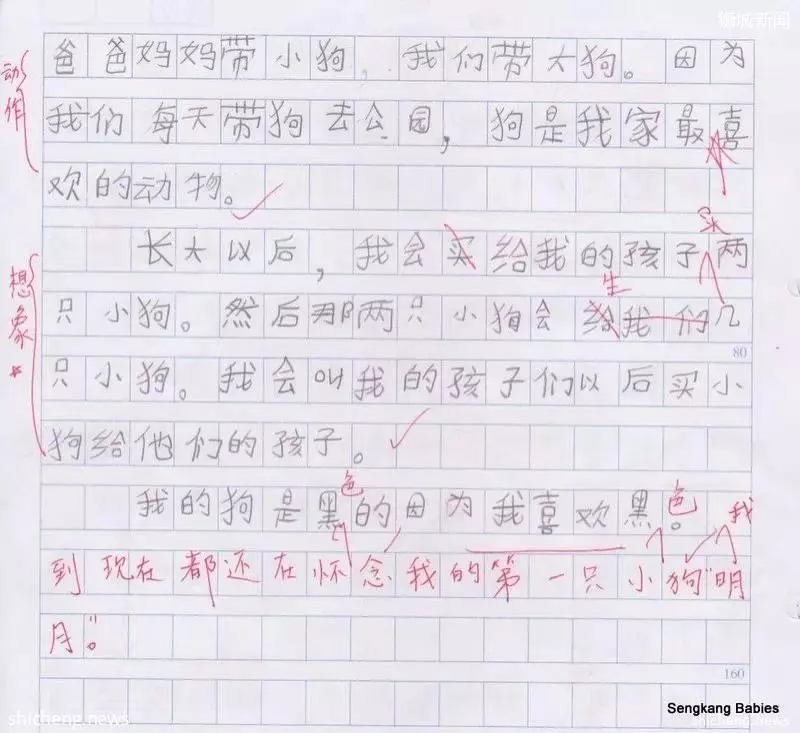 狮城新闻
爸爸妈妈带小狗,我们带大狗。因为
动作
我们每天带狗去公园,狗是我家最喜
欢的动物。
买
长大以后,我会买给我的孩子两
想象*
生
只小狗。然后那两只小狗会给我们几
80
只小狗。我会叫我的孩子们以后买小
狗给他们的孩子。
色
我的狗是黑的因为我喜欢黑。
色 我
到现在都还在怀念我的第一只小狗“明
月”。
160
Sengkang Babies
shicheng.news
shicheng.news